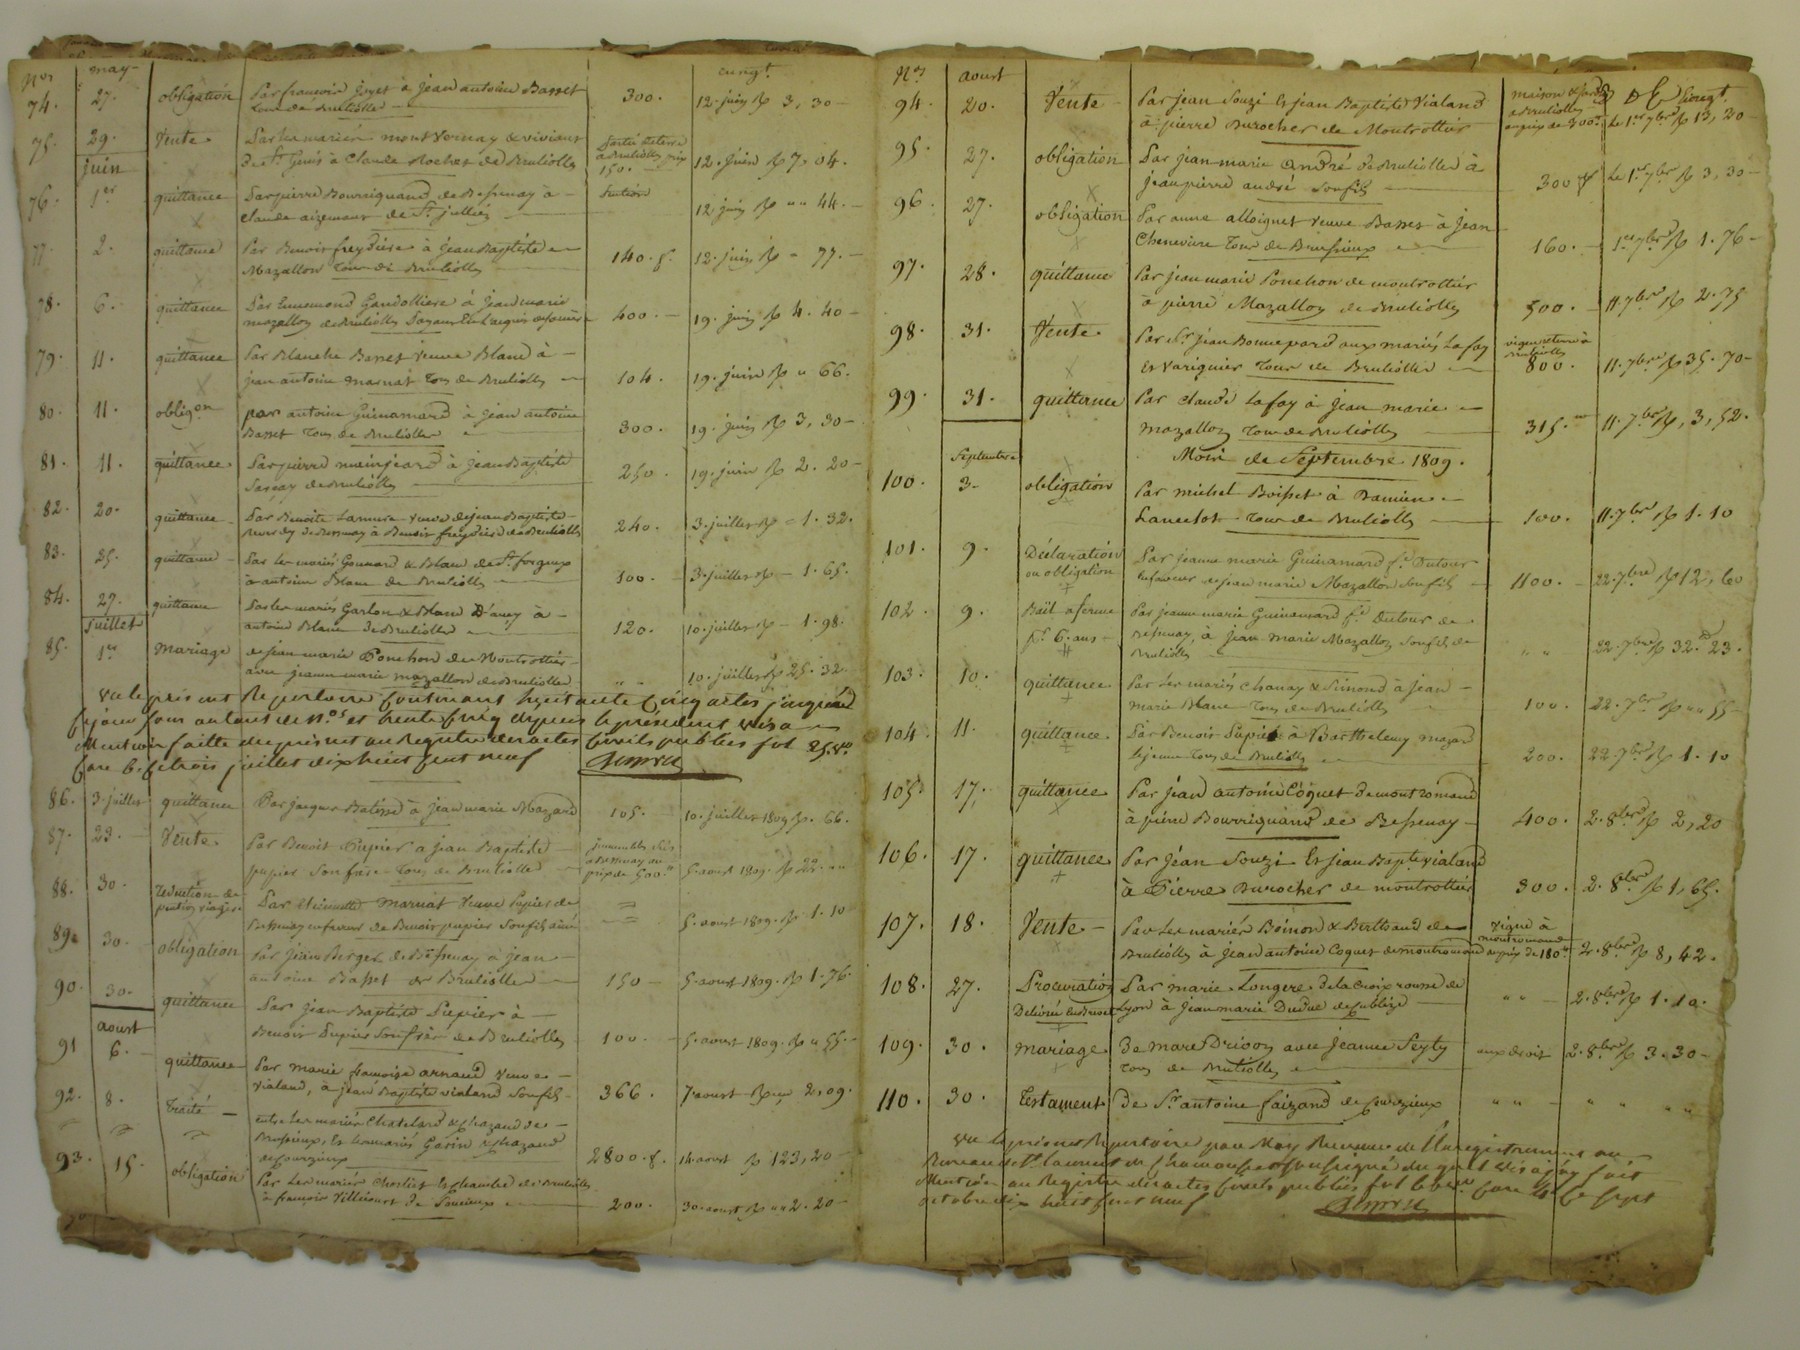 Nos may enregt
74. 27. obligation Par francois Joyet à Jean antoine Basset 300. 12. juin p 3, 30
tous de Brulliolles
75. 29. Vente Par les mariés mont Vernay & viviant partie de terre
de St Genis à Claude Rochet de Brulliolles à Brulliolles prix 150. 12. juin p 7. 04.
juin
76. 1er quittance Par pierre Bourriquand de Bessenay à
claude aizemant de St jullien 12. juin p "" 44.
77. 2. quittance Par Benoit freydière à Jean Baptiste 140. f. 12. juin p - 77.
Mazallon tous de Brulliolles
78. 6. quittance Par Ennemond Gandolliere à Jean marie 400. 19. juin p 4. 40
mazallon de Brulliolles
79. 11. quittance Par Blanche Basset veuve Bland à
jean antoine marnat tous de Brulliolles 104. 19. juin p " 66.
80. 11. obligon par antoine Guinamard à Jean antoine
Basset tous de Brulliolles 300. 19. juin p 3, 30
81. 11. quittance Par pierre mainjeard à Jean Baptiste
de Brulliolles 250. 19. juin p 2. 20
82. 20. quittance Par Benoite Lamure veuve de jean Baptiste
de Bessenay à Benoit freydiere de Brulliolles 240. 3. juillet p 1. 32.
83. 25. quittance Par les mariés Gonnard & Blanc de St forgeux
à antoine Blanc de Brulliolles 100. 3. juillet p 1. 65.
84. 27. quittance Par les mariés Garlon & Blanc D'ancy à
antoine Blanc de Brulliolles 120. 10. juillet p 1. 98.
juillet
85. 1er Mariage de jean marie Ponchon de Montrottier
avec jeanne marie mazallon de Brulliolles " " 10. juillet p 25. 32
Vu le présent Repertoire contenant huitante cinq actes jusqu'à
ce jour
Mention faitte du présent au Registre des actes civils publics fol 25 vo
case 6. ce trois juillet dix huit cent neuf
86. 3. juillet quittance Par jacques Batisse à jean marie Mazard 105. 10. juillet 1809 p. 66.
87. 23. Vente Par Benoit Pupier a Jean Baptiste immeubles
pupier son frère tous de Brulliolles à Bessenay au prix de 500. 5. aout 1809. p 22.
88. 30. reduction de Par Etiennette Marnat Veuve Pupier de
pention viagere Bessenay en faveur de Benoit pupier son fils ainé 5. aoust 1809. p 1. 10
89. 30. obligation Par Jean Berger de Bessenay à jean
antoine Basset de Brulliolles 150 5. aoust 1809. p 1. 76.
90. 30. quittance Par Jean Baptiste Pupier à
Benoit Pupier son frère de Brulliolles 100. 5. aoust 1809. p " 55.
aoust
91 6. quittance Par Marie francoise arnaud Veuve
vialand, à jean Baptiste vialand son fils 366. 7. aoust p 2, 09.
92. 8. traité entre Les mariés Chatelard & chazaud de
Brussieux, Et les mariés Garin & chazaud
de Courzieux 2800. f. 14. aoust p 123, 20
93. 15. obligation Par Les mariés Et chambe de Brulliolles
à francois Villecourt de 200. 30. aoust p " 2. 20
Nos aoust D E Enregt.
94. 20. Vente Par jean Souzi Et jean Baptiste Vialand maison &
à pierre Durocher de Montrottier à Brulliolles au prix de 300. Le 1er 7bre p 13, 20
95. 27. obligation Par jean marie André de Brulliolles à
jean pierre andré son fils 300 f Le 1er 7bre p 3, 30
96. 27. obligation Par anne alloignet veuve Basset à Jean
Chenevière tous de Brussieux 160. 1er 7bre p 1. 76
97. 28. quittance Par jean marie Ponchon de montrottier
à pierre Mazallon de Brulliolles 500. 11. 7bre p 2. 75
98. 31. Vente Par Sr jean Bonnepard aux mariés Lafay vigne & terre à Brulliolles
Et Variguier tous de Brulliolles 800. 11. 7bre p 35. 70
99. 31. quittance Par claude Lafay à Jean marie
mazallon tous de Brulliolles 315. 11. 7bre p, 3, 52.
Septembre Mois de Septembre 1809.
100. 3. obligation Par michel Boisset à Damien
Lancelot tous de Brulliolles 100. 11. 7bre p 1. 10
101. 9. Déclaration Par jeanne marie Guinamard fe Dutour
ou obligation en faveur de jean marie Mazallon son fils 1100. 22. 7bre p 12, 60
102. 9. Bail a ferme Par jeanne marie Guinamard fe Dutour de
pr 6. ans Bessenay, à jean marie Mazallon son fils de
Brulliolles " " 22. 7bre p 32. 23.
103. 10. quittance Par Les mariés chanay & Simond à jean
marie Blanc tous de Brulliolles 100. 22. 7bre p "" 55
104. 11. quittance Par Benoit Pupier à Barthelemy mazard
le jeune tous de Brulliolles 200. 22. 7bre p 1. 10
105. 17. quittance Par jean antoine Coquet de montromand
à pierre Bourriquand de Bessenay 400. 2. 8bre p 2, 20
106. 17. quittance Par Jean Souzi Et jean Bapte vialand
à Pierre Durocher de montrottier 300. 2. 8bre p 1, 65.
107. 18. Vente Par Les mariés Boinon & Berthaud de vigne à montromand
Brulliolles à jean antoine Coquet de montromand au prix de 180. 2. 8bre p 8, 42.
108. 27. Procuration Par marie Longere de la croix rousse de
Délivrée En Brevet Lyon à jean marie Duduc " " 2. 8bre p 1. 10.
109. 30. mariage de marc Drivon avec jeanne Peyty aux droit 2. 8bre p 3. 30
tous de Brulliolles
110. 30. Testament de Sr antoine faizand de Courzieux " " " " " "
Vu le présent Repertoire par Moy Receveur de l'Enregistrement au
Bureau de St Laurent de Chamousset soussigné fait
Mention au Registre des actes civils publics case 4 ce sept
octobre dix huit cent neuf